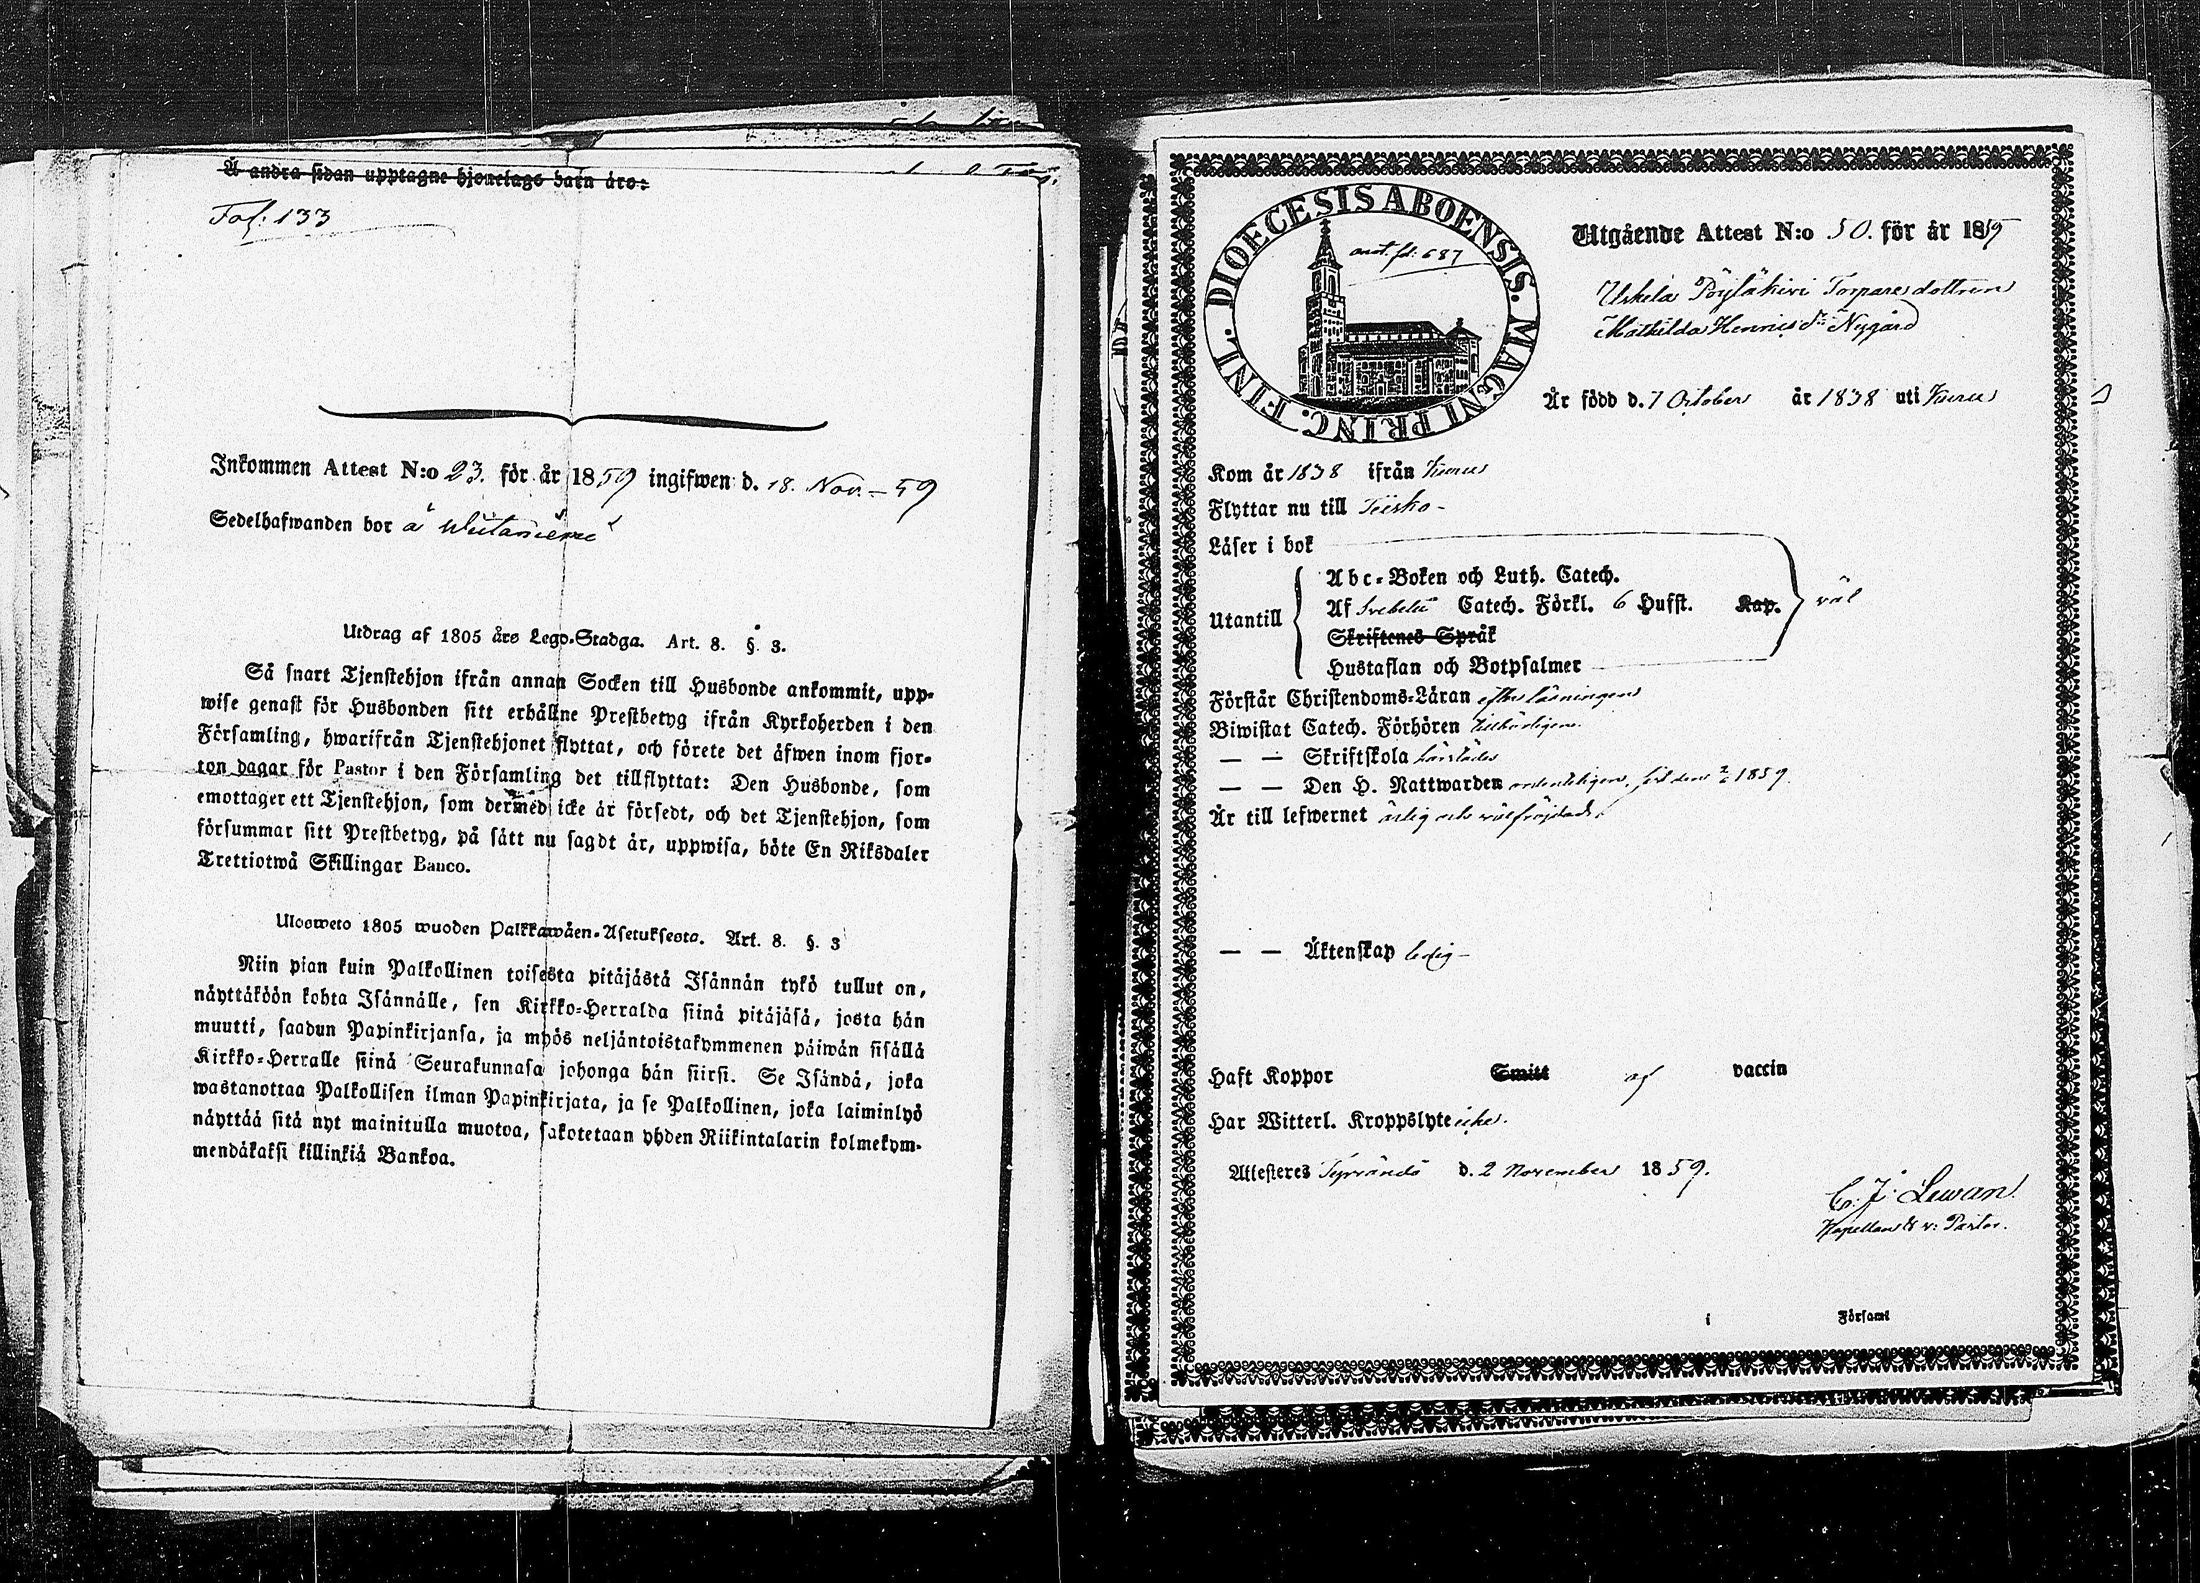 Å andra sidan upptagne hjonelags barn äro:
Fol: 133
Inkommen Attest N:o 23. för år 1859 ingifwen d. 18. Nov. – 59
Sedelhafwanden bor å
Utdrag af 1805 års Lego-Stadga. Art. 8. §. 3.
Så snart Tjenstehjon ifrån annan Socken till Husbonde ankommit, upp-
wise genast för Husbonden sitt erhållne Prestbetyg ifrån Kyrkoherden i den
Församling, hwarifrån Tjenstehjonet flyttat, och förete det äfwen inom fjor-
ton dagar för Pastor i den Församling det tillflyttat: Den Husbonde, som
emottager ett Tjenstehjon, som dermed icke är försedt, och det Tjenstehjon, som
försummar sitt Prestbetyg, på sätt nu sagdt är, uppwisa, böte En Riksdaler
Trettiotwå Skillingar Banco.
Ulosweto 1805 wuoden Palkkawäen-Asetuksesta. Art. 8. §. 3
Niin pian kuin Palkollinen toisesta pitäjästä Isännän tykö tullut on,
näyttäköön kohta Isännälle, sen Kirkko-Herralda siinä pitäjäsä, josta hän
muutti, saadun Papinkirjansa, ja myös neljäntoistakymmenen päiwän sisällä
Kirkko-Herralle siinä Seurakunnasa johonga hän siirsi. Se Isändä, joka
wastanottaa Palkollisen ilman Papinkirjata, ja se Palkollinen, joka laiminlyö
näyttää sitä nyt mainitulla muotoa, sakotetaan yhden Riikintalarin kolmekym-
mendäkaksi killinkiä Bankoa.
DIOECESIS ABOENSIS. MAGNI PRINC. FINL.
ant. fol: 687
Utgående Attest N:o 50. för år 1859
Uskela Pöyläkivi Torparedottren
Mathilda Henricsdr Nygård
Är född d. 7 October år 1838 uti Kuru
Kom år 1838 ifrån Kuru
Flyttar nu till Teisko –
Läser i bok
Utantill
Abc-Boken och Luth. Catech.
Af Svebelii Catech. Förkl. 6 Hufst. Kap.
väl
Skriftenes Språk
Hustaflan och Botpsalmer
Förstår Christendoms-Läran efter läsningen
Biwistat Catech. Förhören tillbörligen
— — Skriftskola härstädes
— — Den H. Nattwarden ordenteligen, sist den 1859.
Är till lefwernet ärlig och välfrejdad.
— — Äktenskap ledig –
Haft Koppor Smitt af vaccin
Har Witterl. Kroppslyte icke.
Attesteres Tyrvändö d. 2 November 1859.
C. J. Lewan.
Kapellan & v: Pastor.
i Församl